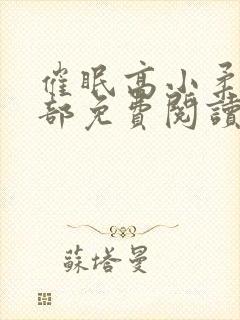 催眠高小柔
部免費閱讀
蘇塔曼